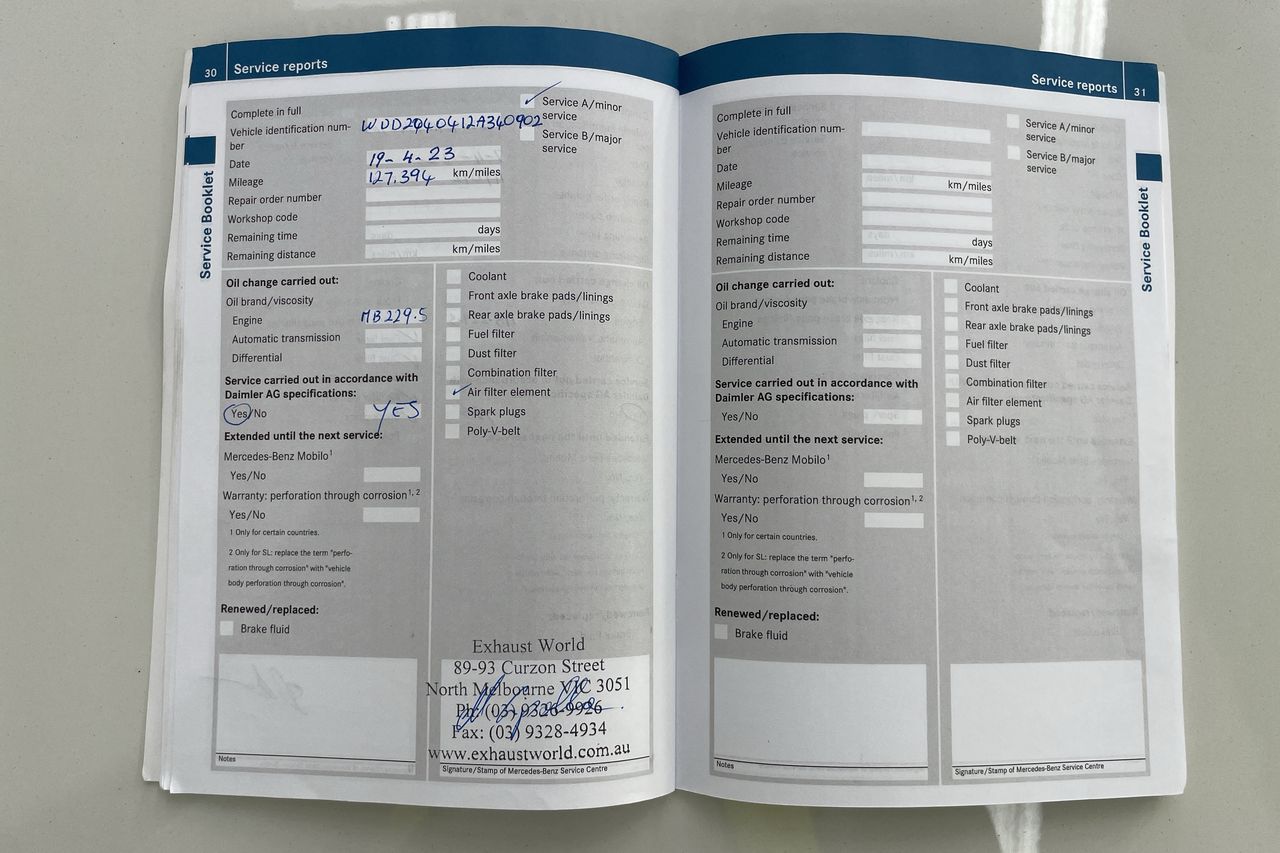 30 Service reports
Complete in full
Vehicle identification num-
ber
WDD2040412A340902
Date
19-4-23
Mileage
127,394 km/miles
Repair order number
Workshop code
Remaining time
days
Remaining distance
km/miles
Service A/minor
service
Service B/major
service
Service Booklet
Oil change carried out:
Oil brand/viscosity
Engine
MB229.5
Automatic transmission
Differential
Service carried out in accordance with
Daimler AG specifications:
Yes/No
YES
Extended until the next service:
Mercedes-Benz Mobilo¹
Yes/No
Warranty: perforation through corrosion¹, ²
Yes/No
1 Only for certain countries.
2 Only for SL: replace the term "perfo-
ration through corrosion" with "vehicle
body perforation through corrosion".
Renewed/replaced:
Brake fluid
Coolant
Front axle brake pads/linings
Rear axle brake pads/linings
Fuel filter
Dust filter
Combination filter
Air filter element
Spark plugs
Poly-V-belt
Notes
Exhaust World
89-93 Curzon Street
North Melbourne VIC 3051
Ph: (03) 9326-9926
Fax: (03) 9328-4934
www.exhaustworld.com.au
Signature/Stamp of Mercedes-Benz Service Centre
Service reports 31
Complete in full
Vehicle identification num-
ber
Date
Mileage
km/miles
Repair order number
Workshop code
Remaining time
days
Remaining distance
km/miles
Service A/minor
service
Service B/major
service
Service Booklet
Oil change carried out:
Oil brand/viscosity
Engine
Automatic transmission
Differential
Service carried out in accordance with
Daimler AG specifications:
Yes/No
Extended until the next service:
Mercedes-Benz Mobilo¹
Yes/No
Warranty: perforation through corrosion¹, ²
Yes/No
1 Only for certain countries.
2 Only for SL: replace the term "perfo-
ration through corrosion" with "vehicle
body perforation through corrosion".
Renewed/replaced:
Brake fluid
Coolant
Front axle brake pads/linings
Rear axle brake pads/linings
Fuel filter
Dust filter
Combination filter
Air filter element
Spark plugs
Poly-V-belt
Notes
Signature/Stamp of Mercedes-Benz Service Centre